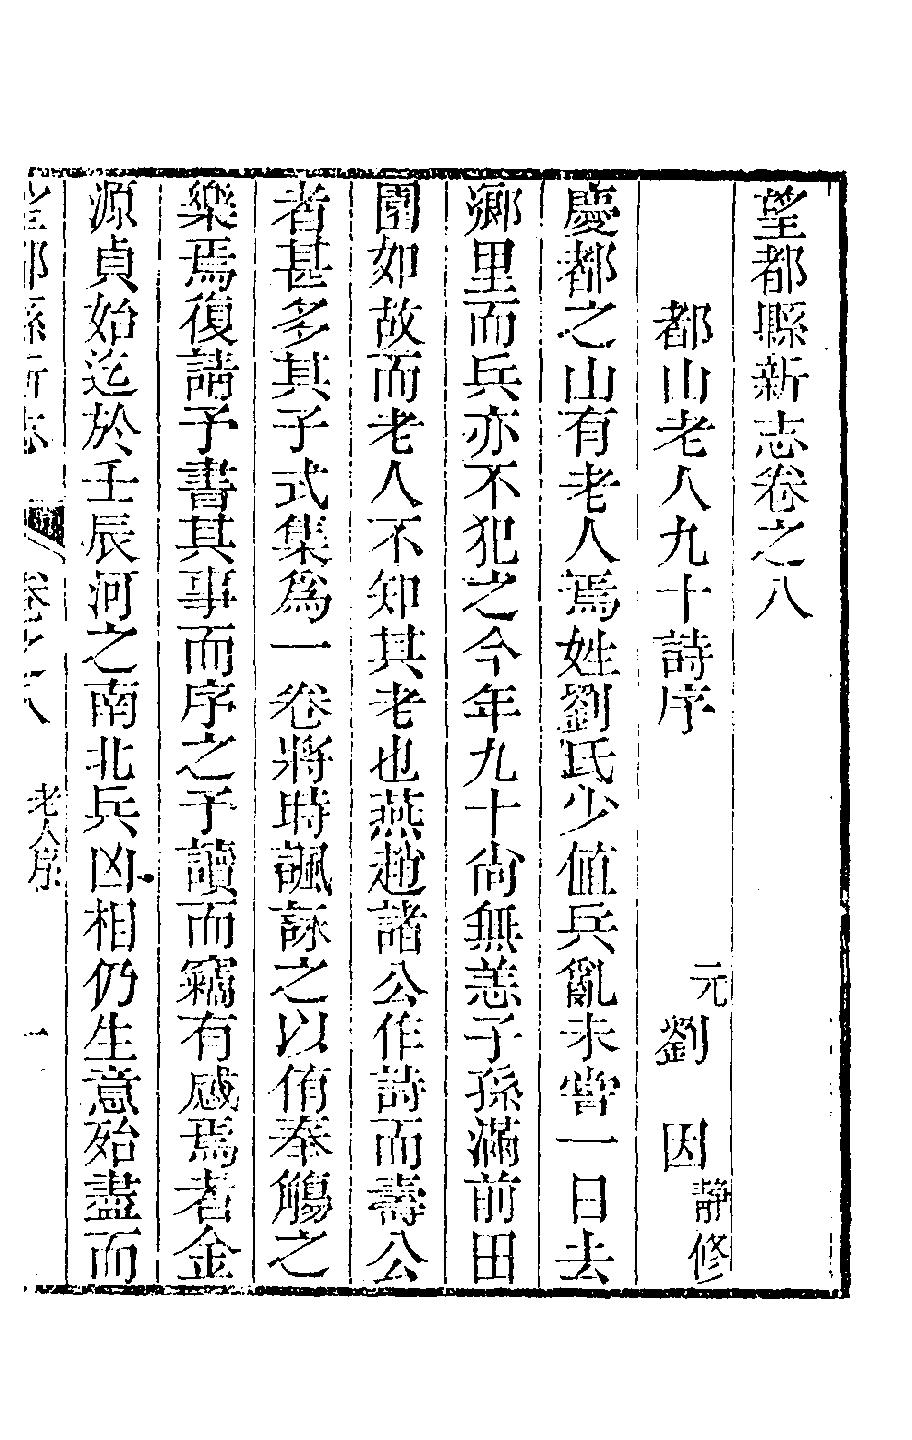 望都縣新志卷之八
都山老人九十詩序　元劉　因靜修
慶都之山有老人焉姓劉氏少値兵亂未嘗一日去
鄉里而兵亦不犯之今年九十尙無恙子孫滿前田
園如故而老人不知其老也燕趙諸公作詩而壽公
者甚多其子式集爲一卷將時諷詠之以侑奉觴之
樂焉復請予書其事而序之予讀而竊有感焉者金
源貞始迄於壬辰河之南北兵凶相仍生意殆盡而
望都縣新志　卷之八　老人序　一